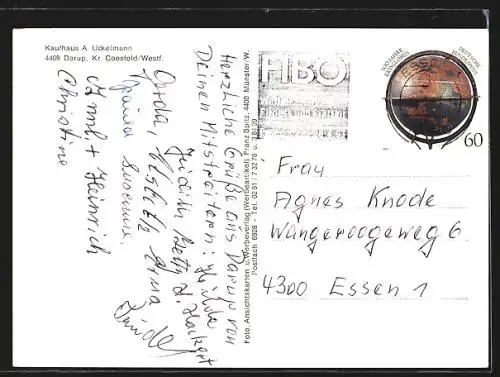 Kaufhaus A. Uckelmann
4409 Darup, Kr. Coesfeld/Westf.
Herzliche Grüße aus Darup von
Deinen Mitstreitern: Hilde
Judith, Betty
Gerda, Elsbeth, Erna
Susanne,
Annl + Heinrich
Christine
Foto, Ansichtskarten u. Werbeverlag (Werbeartikel) Franz Spitz, 4400 Münster/W.
Postfach 6928 - Tel. 02 51 / 7 32 78 u.
HBO
500 JAHRE
ERDGLOBUS
DEUTSCHE
BUNDESPOST
ESSEN
60
Frau
Agnes Knode
Wangeroogeweg 6
4300 Essen 1